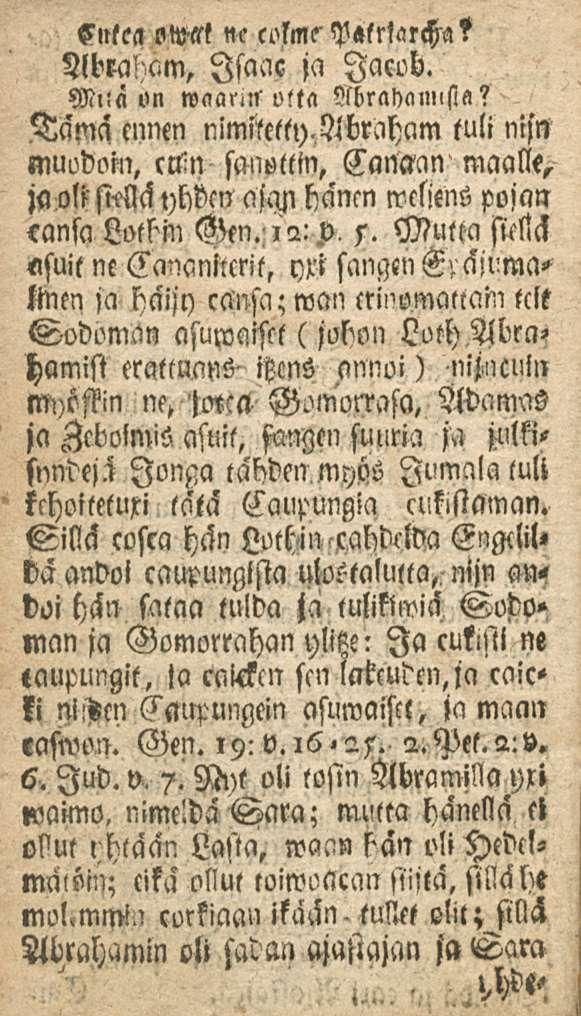 Cutca owat ne colme Patriarcha?
Abraham, Isaac ja Jacob.
Mitä on waarin otta Abrahamista?
Tämä ennen nimitetty Abraham tuli nijn
muodoin, cuin sanottin, Canaan maalle,
ja oli siellä yhden ajan hänen weljens pojan
cansa Lothin Gen. 12: v. 5. Mutta siellä
asuit ne Cananiterit, yxi sangen Epäjuma-
linen ja häijy cansa; wan erinomattain ne
Sodoman asuwaiset (johon Loth Abra-
hamist erattuans itzens annoi) nijncuin
myöskin ne, jotca Gomorrasa, Adamas
ja Zeboimis asuit, sangen suuria ja julki-
syndejä Jonga tähden myös Jumala tuli
kehoitetuxi tätä Caupungia cukistaman.
Sillä cosca hän Lothin cahdelda Engelil-
dä andoi caupungista ulostalutta, nijn an-
doi hän sataa tulda ja tulikiwiä Sodo-
man ja Gomorrahan ylitze: Ja cukisti ne
caupungit, ja caicken sen lakeuden, ja caic-
ki nijden Caupungein asuwaiset, ja maan
caswon. Gen. 19: v. 16-25. 2. Pet. 2: v.
6. Jud. v. 7. Nyt oli tosin Abramilla yxi
waimo, nimeldä Sara; mutta hänellä ei
ollut yhtään Lasta, waan hän oli Hedel-
mätöin; eikä ollut toiwoacan siitä, sillä he
molemmin corkiaan ikään tullet olit; sillä
Abrahamin oli sadan ajastajan ja Sara
yhde-